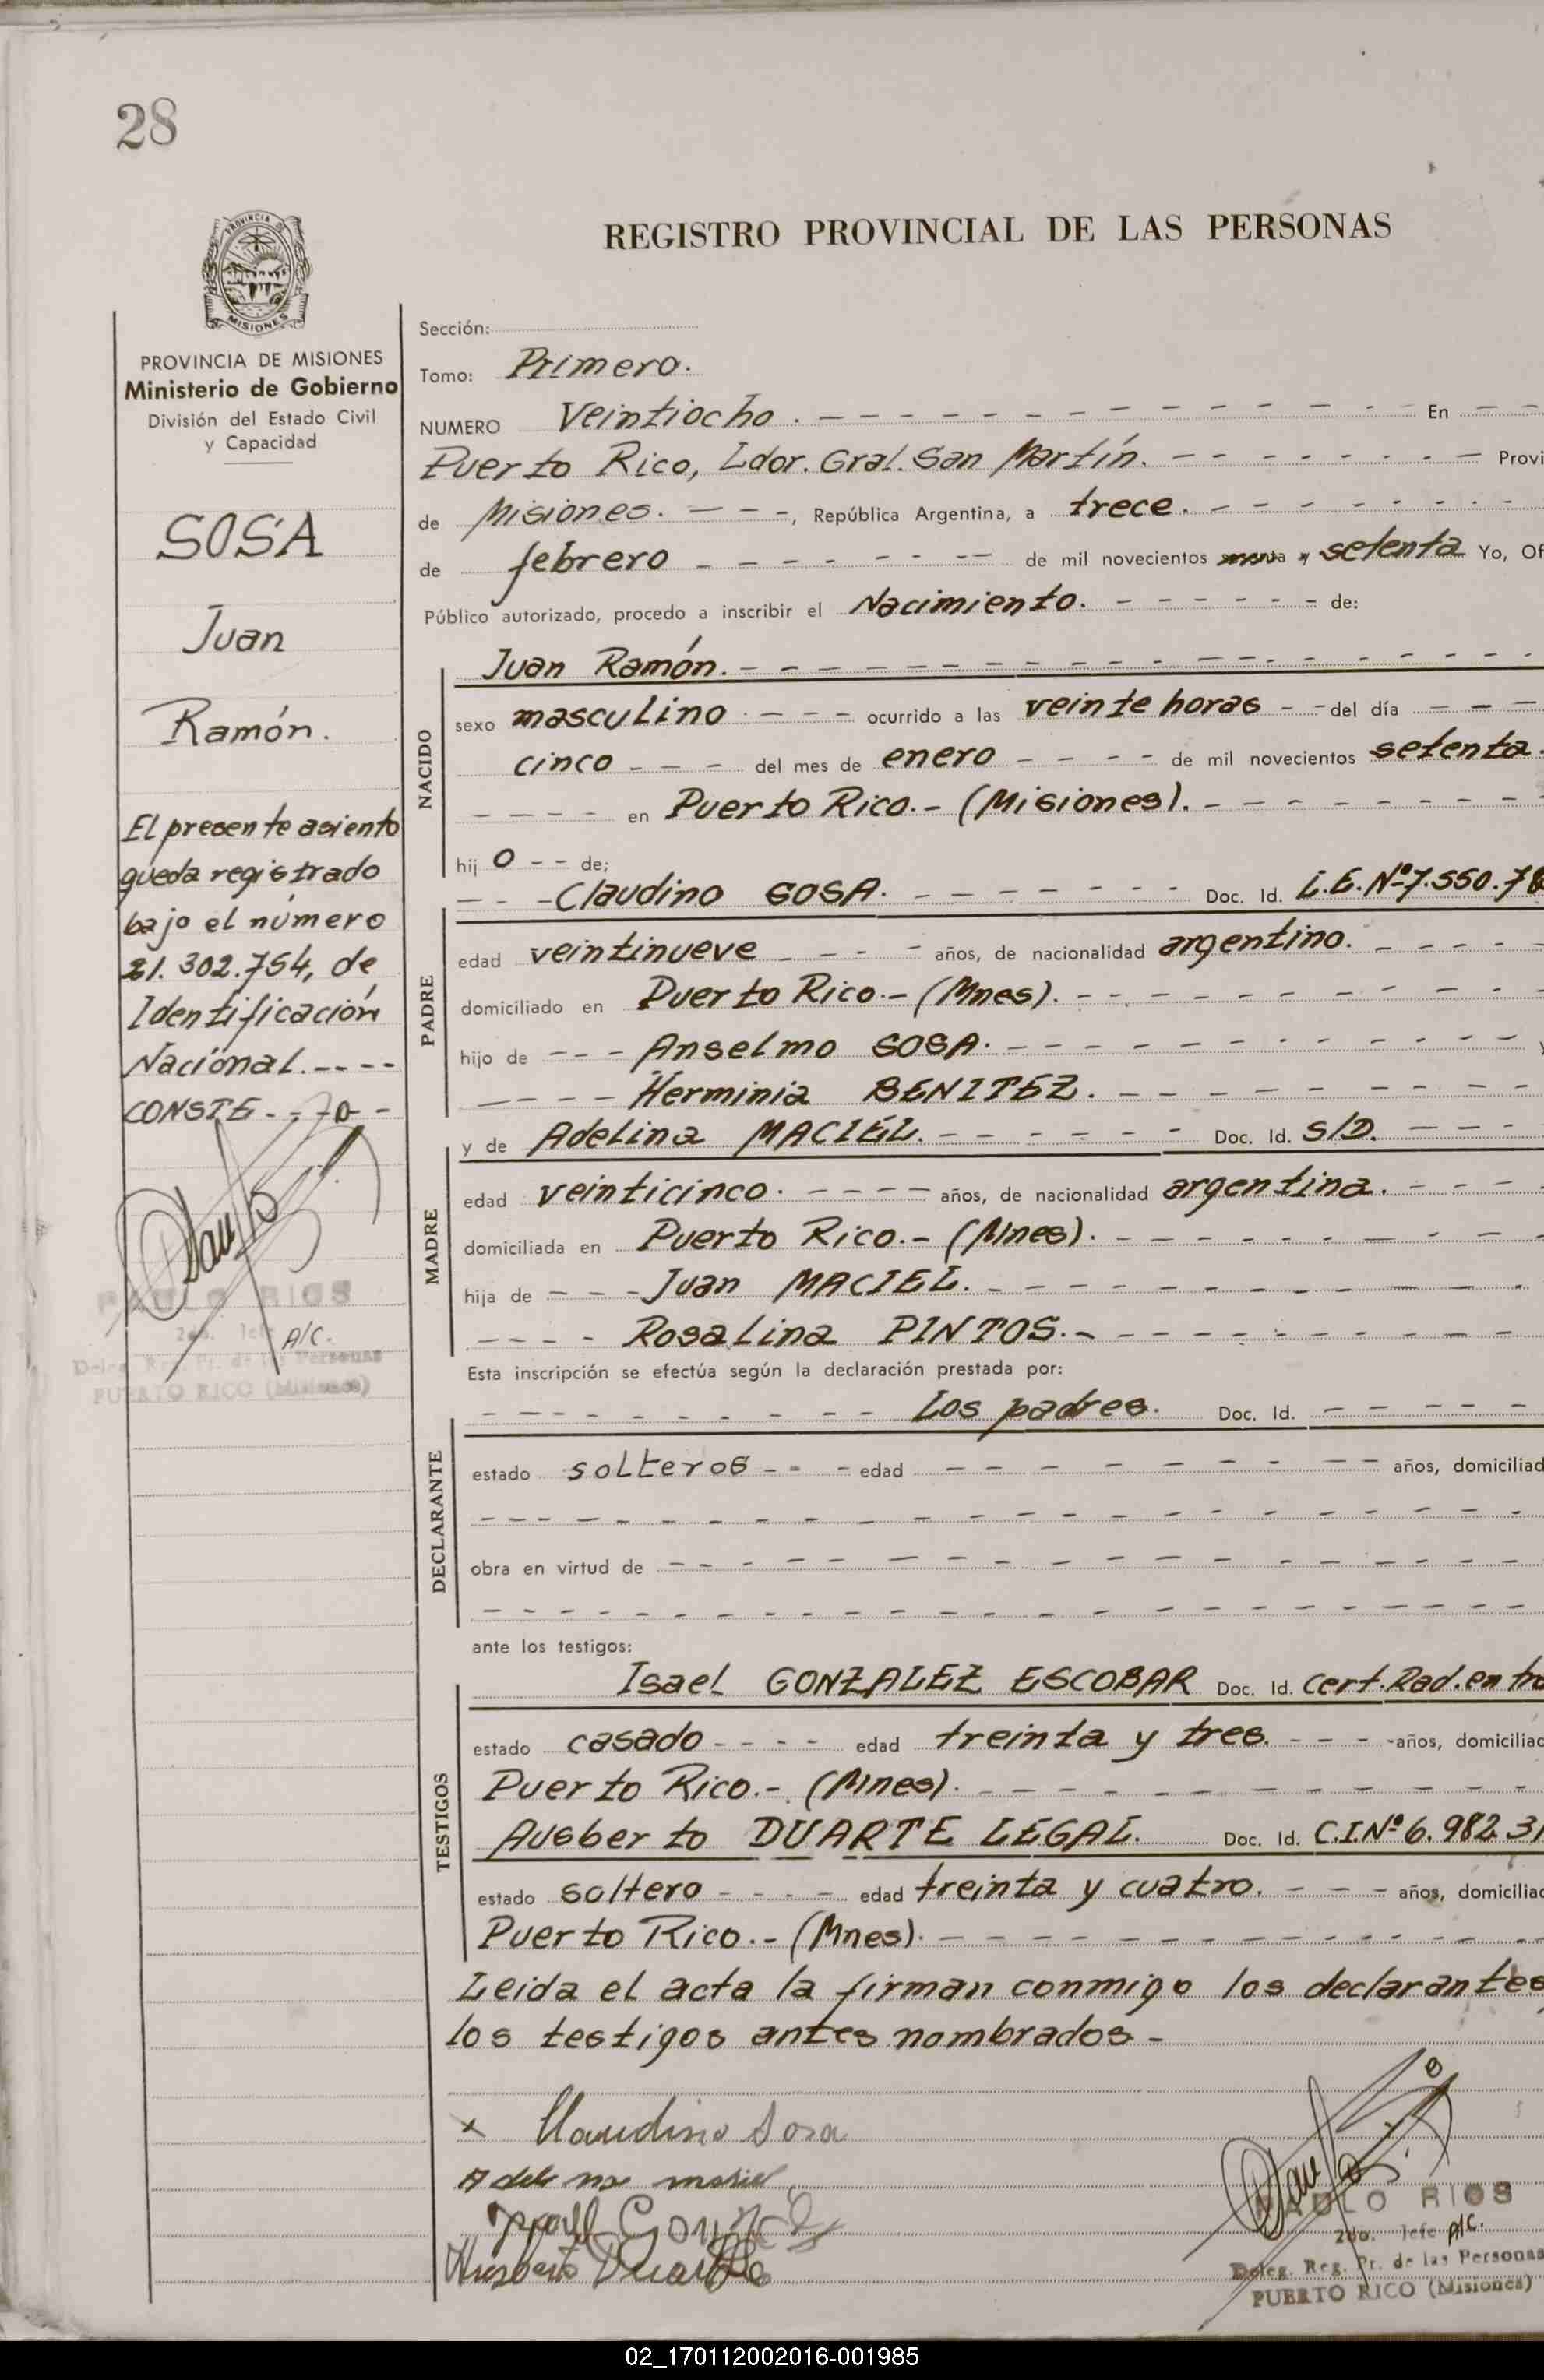 28
PROVINCIA
MISIONES
REGISTRO PROVINCIAL DE LAS PERSONAS
PROVINCIA DE MISIONES
Ministerio de Gobierno
División del Estado Civil
y Capacidad
SOSA
Juan
Ramón.
El presente asiento
queda registrado
bajo el número
21.302.754, de
Identificación
Nacional.----
CONSTE.-
PABLO RIOS
2do. Jefe A/C.
Deleg. Reg. Pr. de las Personas
PUERTO RICO (Misiones)
Sección:
Tomo: Primero.
NUMERO Veintiocho. En
Puerto Rico, Ldor. Gral. San Martín. Provi
de Misiones. ---, República Argentina, a trece.
de febrero de mil novecientos setenta Yo, Of
Público autorizado, procedo a inscribir el Nacimiento. de:
NACIDO
Juan Ramón.
sexo masculino ocurrido a las veinte horas del día
cinco del mes de enero de mil novecientos setenta.
en Puerto Rico.- (Misiones).
hij o de;
PADRE
Claudino SOSA. Doc. Id. L.E. Nº 7.550.7
edad veintinueve años, de nacionalidad argentino.
domiciliado en Puerto Rico.- (Mnes).
hijo de Anselmo SOSA. y
Herminia BENITEZ.
MADRE
y de Adelina MACIEL. Doc. Id. S/D.
edad veinticinco. años, de nacionalidad argentina.
domiciliada en Puerto Rico.- (Mnes).
hija de Juan MACIEL.
Rosalina PINTOS.-
Esta inscripción se efectúa según la declaración prestada por:
DECLARANTE
Los padres. Doc. Id.
estado solteros edad años, domiciliad
obra en virtud de
ante los testigos:
TESTIGOS
Isael GONZALEZ ESCOBAR Doc. Id. Cert. Rad. en tra
estado casado edad treinta y tres. años, domiciliad
Puerto Rico.- (Mnes).
Ausberto DUARTE LEGAL. Doc. Id. C.I. Nº 6.982.31
estado soltero edad treinta y cuatro. años, domiciliad
Puerto Rico.- (Mnes).
Leida el acta la firman conmigo los declarantes
los testigos antes nombrados-
x Claudino Sosa
PABLO RIOS
2do. Jefe A/C.
Deleg. Reg. Pr. de las Personas
PUERTO RICO (Misiones)
02_170112002016-001985